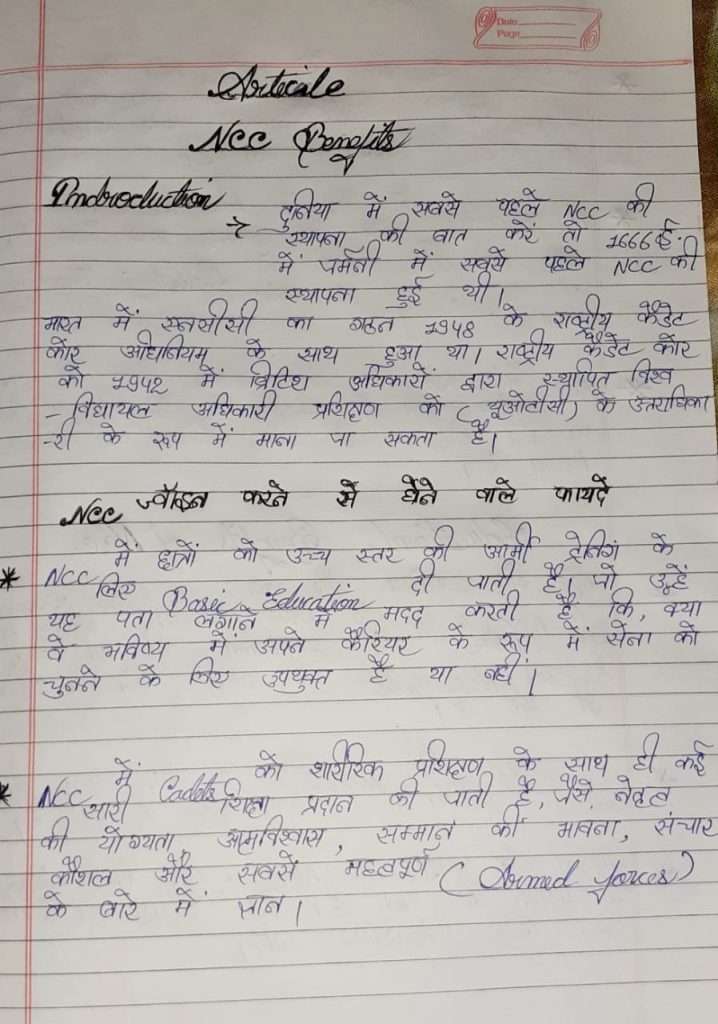 Date
Page
Articale
NCC Benefits
Indroduction
→ दुनिया में सबसे पहले NCC की
स्थापना की बात करें तो 1666 ई.
में जर्मनी में सबसे पहले NCC की
स्थापना हुई थी।
भारत में एनसीसी का गठन 1948 के राष्ट्रीय कैडेट
कोर अधिनियम के साथ हुआ था। राष्ट्रीय कैडेट कोर
को 1942 में ब्रिटिश अधिकारों द्वारा स्थापित विश्व
-विद्यायल अधिकारी प्रशिक्षण को (यूओटीसी) के उत्तराधिका
-री के रूप में माना जा सकता है।
NCC ज्वॉइन करने से होने वाले फायदे
* NCC में छात्रों को उच्च स्तर की आर्मी ट्रेनिंग के
लिए Basic Education दी जाती है। जो उन्हें
यह पता लगाने में मदद करती है कि, क्या
वे भविष्य में अपने कैरियर के रूप में सेना को
चुनने के लिए उपयुक्त है या नहीं।
* NCC में Cadets को शारीरिक प्रशिक्षण के साथ ही कई
सारी शिक्षा प्रदान की जाती है, जैसे, नेतृत्व
की योग्यता आत्मविश्वास, सम्मान की भावना, संचार
कौशल और सबसे महत्वपूर्ण (Armed forces)
के बारे में ज्ञान।